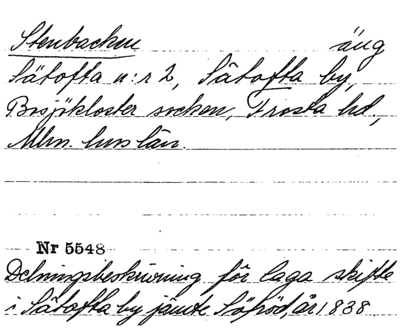 Stenbacken äng
Sätofta n:r 2, Sätofta by,
Bosjökloster socken, Frosta hd,
Mlm. hus län.
Nr 5548
Delningsbeskrivning för laga skifte
i Sätofta by jämte Söfröd år 1838